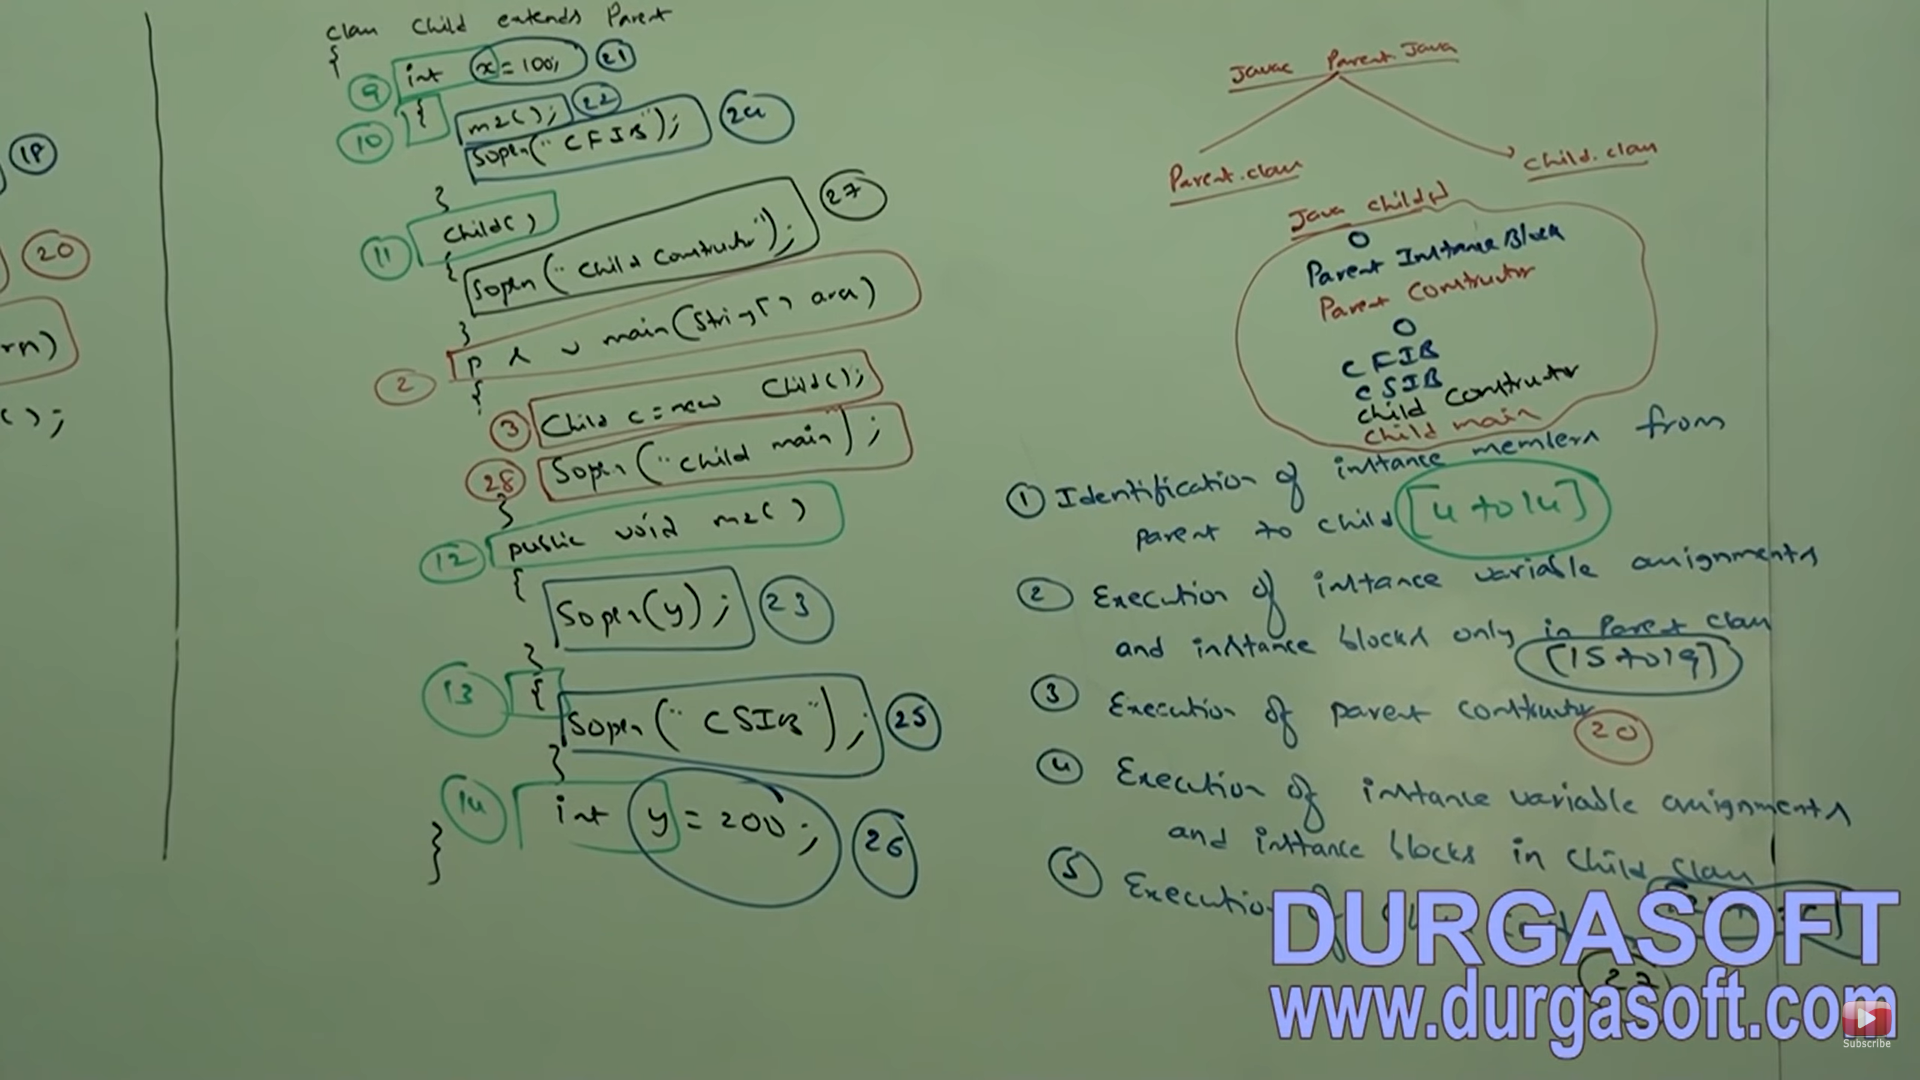 18
20
rn)
( );
class Child extends Parent
{
9 int x = 100; 21
10 { m2( ); 22
Sopln("CFIB"); 24
}
11 Child( )
{
Sopln("Child Constructor"); 27
}
2 p s v main(String[ ] args)
{
3 Child c = new Child();
28 Sopln("Child main");
}
12 public void m2( )
{
Sopln(y); 23
}
13 {
Sopln("CSIB"); 25
}
14 int y = 200; 26
}
Javac Parent.Java
Parent.class
Child.class
Java Child
0
Parent Instance Block
Parent Constructor
0
CFIB
CSIB
Child Constructor
Child main
① Identification of instance members from
parent to child [4 to 14]
② Execution of instance variable assignments
and instance blocks only in Parent class
[15 to 19]
③ Execution of parent constructor
20
④ Execution of instance variable assignments
and instance blocks in Child class
⑤ Execution of
27
DURGASOFT
www.durgasoft.com
Subscribe